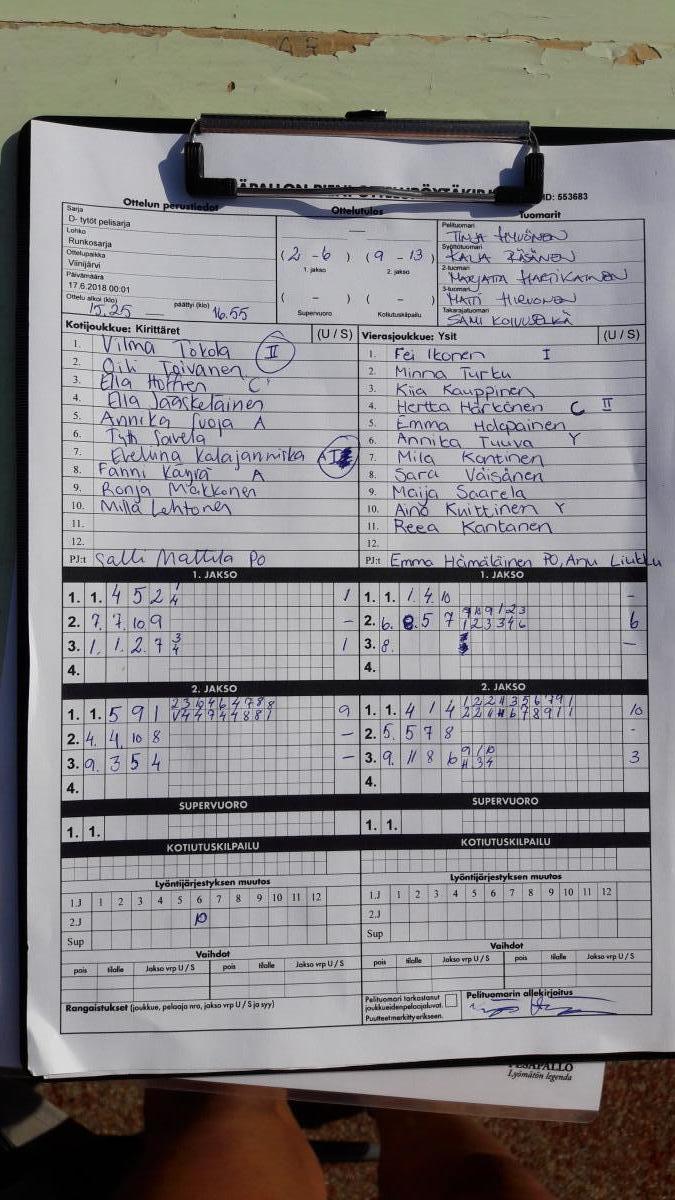 ID: 553683
Ottelun perustiedot
Ottelutulos
Tuomarit
Sarja
D- tytöt pelisarja
Lohko
Runkosarja
Ottelupaikka
Viinijärvi
Päivämäärä
17.6.2018 00:01
Ottelu alkoi (klo) päättyi (klo)
15.25 16.55
(2 - 6) (9 - 13)
1. jakso 2. jakso
( - ) ( - )
Supervuoro Kotiutuskilpailu
Pelituomari
TINJA HYVÖNEN
Syöttötuomari
KALJA RÄSÄNEN
2-tuomari
MARJATTA HARTIKAINEN
3-tuomari
MATTI HIRVONEN
Takarajatuomari
SAMI KOIVUSELKÄ
Kotijoukkue: Kirittäret (U / S)
1. Vilma Tokola II
2. Oili Toivanen
3. Ella Hoffren C
4. Ella Jääskeläinen
5. Annika Suoja A
6. Tyth Savela
7. Eveliina Kalajanniska A I
8. Fanni Käyrä A
9. Ronja Makkonen
10. Milla Lehtonen
11.
12.
PJ:t Salli Mattila PO
Vierasjoukkue: Ysit (U / S)
1. Fei Ikonen I
2. Minna Turku
3. Kiia Kauppinen
4. Hertta Harkönen C II
5. Emma Holopainen
6. Annika Tuuva Y
7. Mila Kantinen
8. Sara Väisänen
9. Maija Saarela
10. Aino Kuittinen Y
11. Reea Kantanen
12.
PJ:t Emma Hämäläinen PO, Anu Liukku
1. JAKSO
1. 1. 4 5 2 1
2. 7. 7. 10 9 -
3. 1. 1. 2. 7 3 4 1
4.
1. JAKSO
1. 1. 1. 4. 10 -
2. 6. 8. 5 7 6
3. 8. -
4.
2. JAKSO
1. 1. 5 9 1 9
2. 4. 4. 10 8 -
3. 9. 3 5 4 -
4.
2. JAKSO
1. 1. 4 1 4 10
2. 5. 5 7 8 -
3. 9. 11 8 6 3
4.
SUPERVUORO
1. 1.
SUPERVUORO
1. 1.
KOTIUTUSKILPAILU
KOTIUTUSKILPAILU
Lyöntijärjestyksen muutos
1.J 1 2 3 4 5 6 7 8 9 10 11 12
2.J 10
Sup
Lyöntijärjestyksen muutos
1.J 1 2 3 4 5 6 7 8 9 10 11 12
2.J
Sup
Vaihdot
pois tilalle Jakso vrp U / S pois tilalle Jakso vrp U / S
Vaihdot
pois tilalle Jakso vrp U / S pois tilalle Jakso vrp U / S
Rangaistukset (joukkue, pelaaja nro, jakso vrp U / S ja syy)
Pelituomari tarkastanut
joukkueiden pelaajaluvat.
Puutteet merkitty erikseen.
Pelituomarin allekirjoitus
PESÄPALLO
Lyömätön legenda